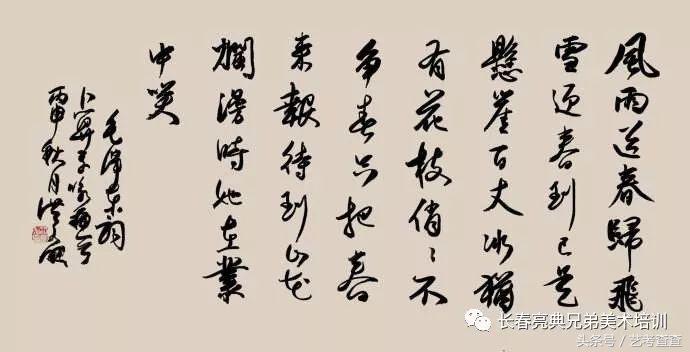 風雨送春歸飛
雪迎春到已是
懸崖百丈冰猶
有花枝俏〻不
争春只把春
来報待到山花
爛漫時她在叢
中咲
毛澤东詞
卜算子咏梅一首
丙申秋月
长春亮典兄弟美术培训
头条号 / 艺考查查